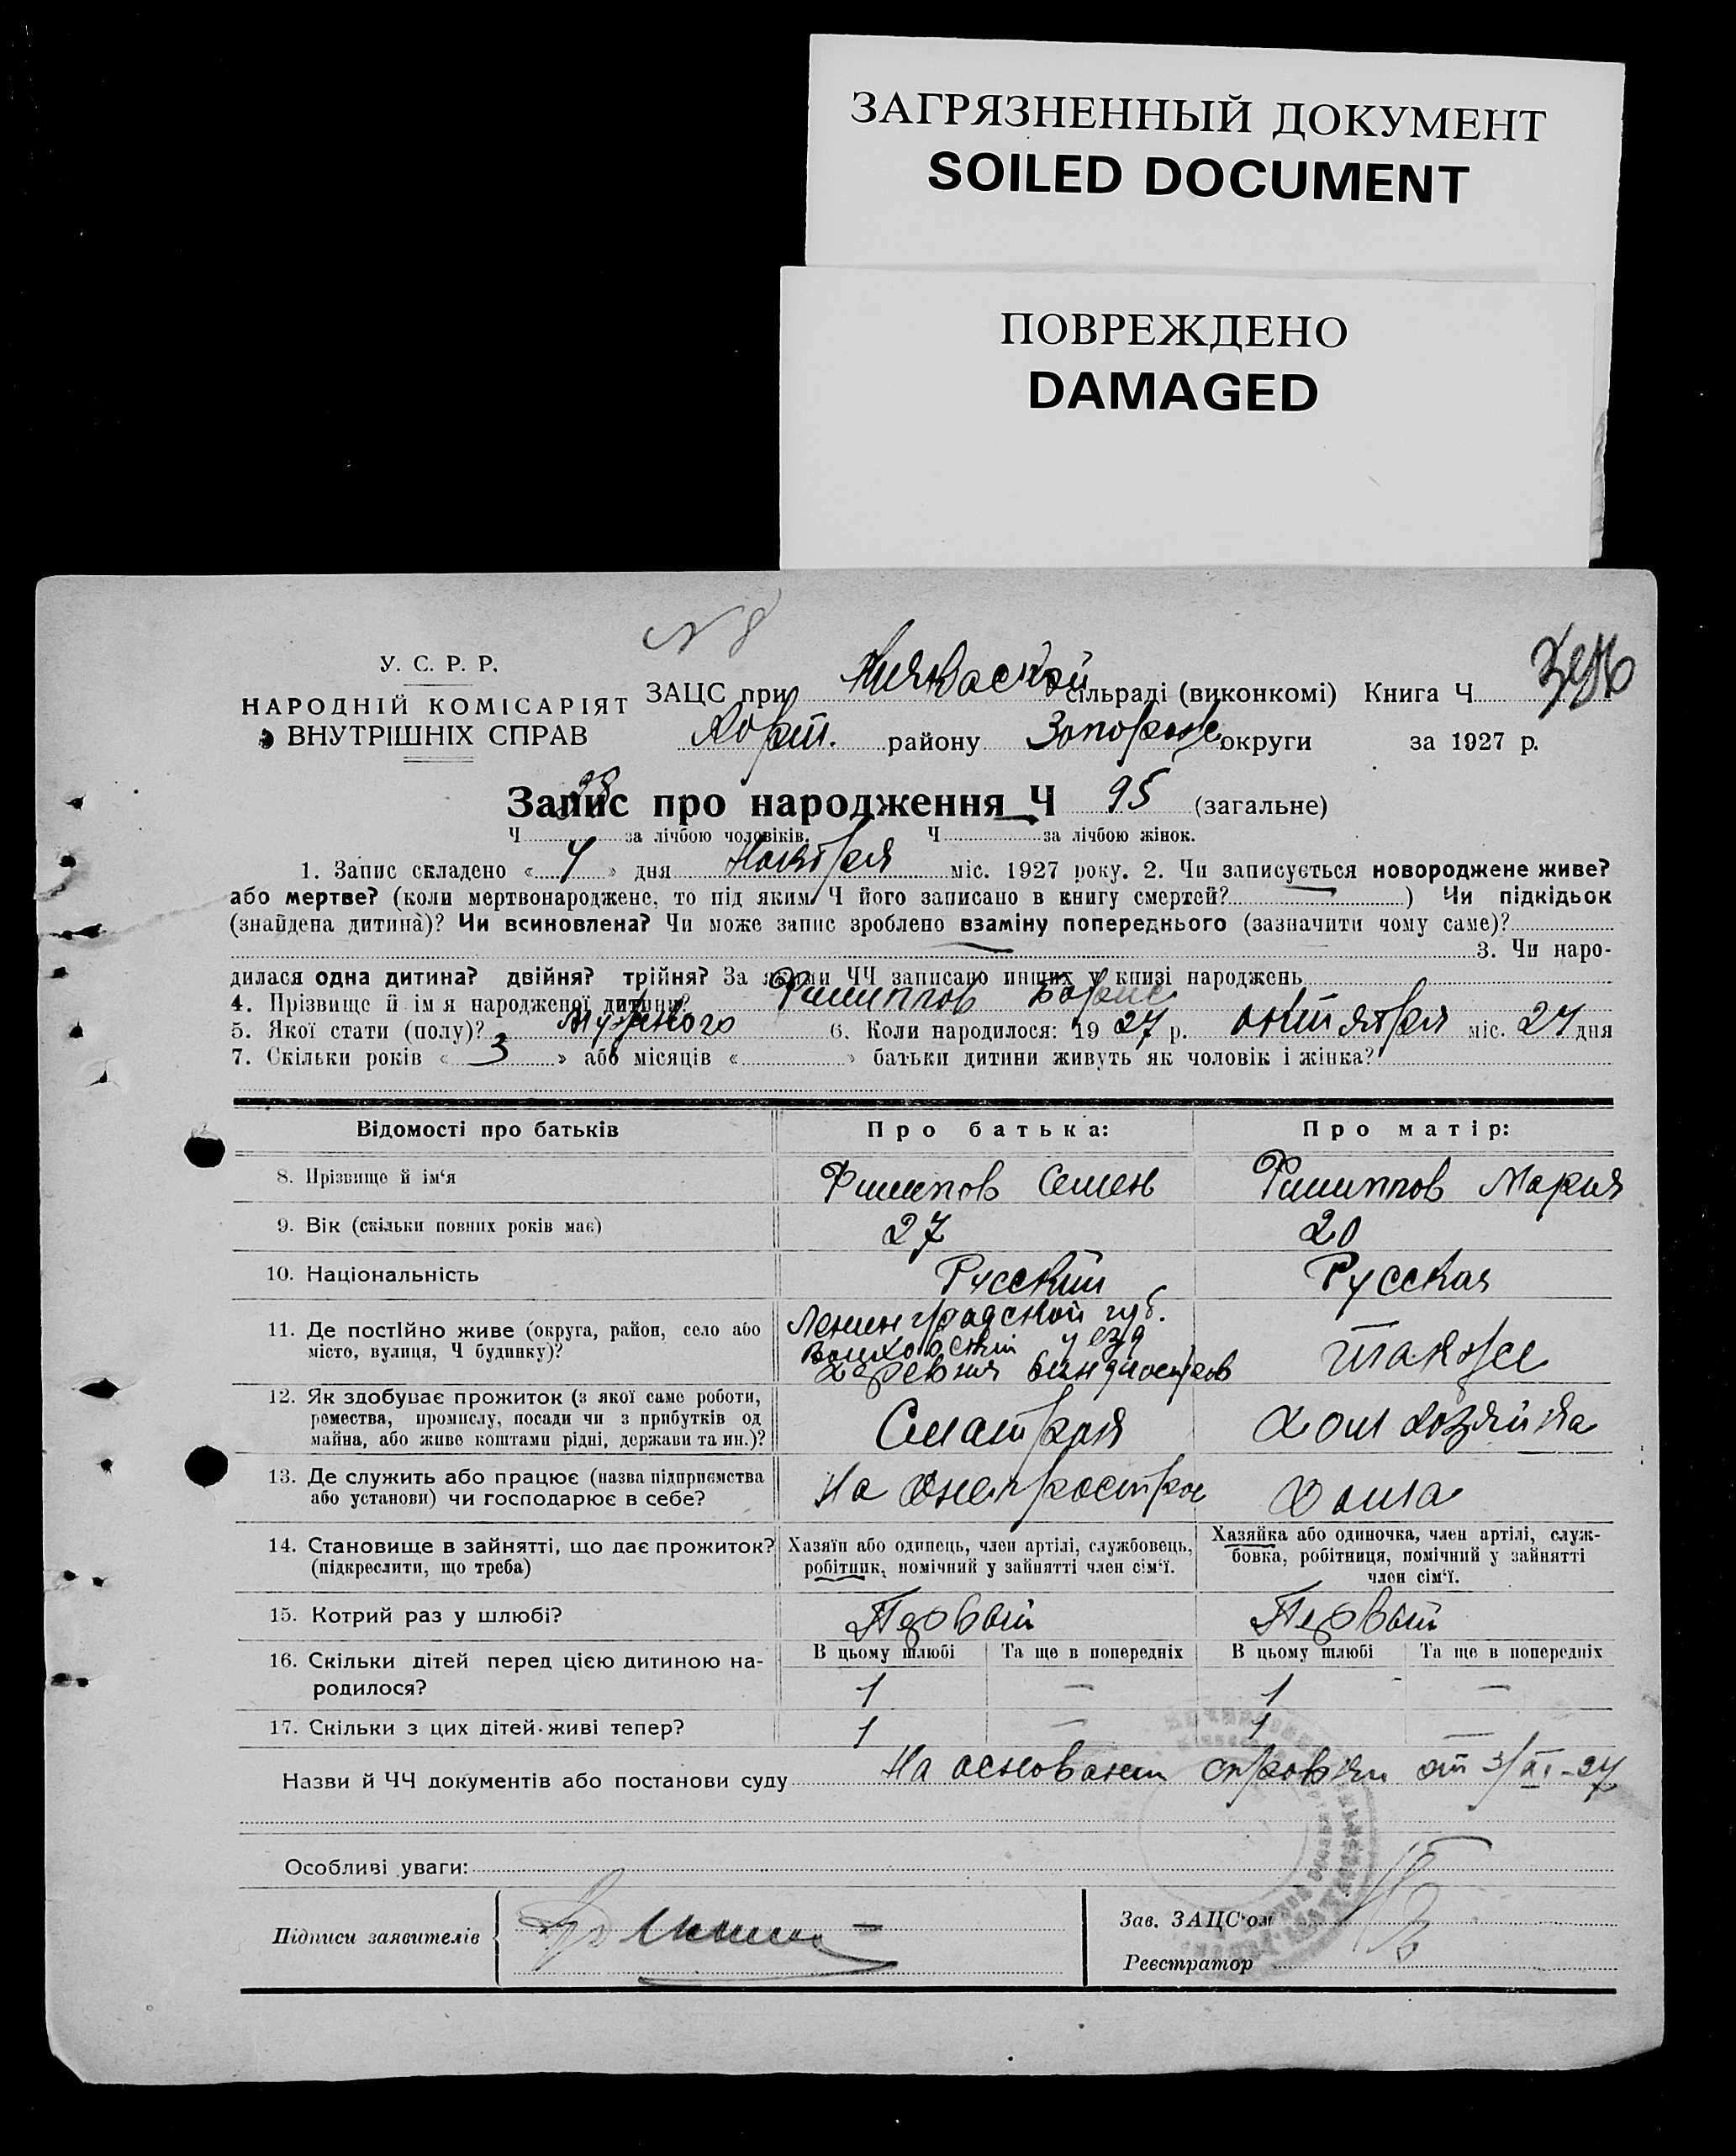 ЗАГРЯЗНЕННЫЙ ДОКУМЕНТ
SOILED DOCUMENT
ПОВРЕЖДЕНО
DAMAGED
N 8
У. С. Р. Р.
НАРОДНІЙ КОМІСАРІЯТ
ВНУТРІШНІХ СПРАВ
ЗАЦС при сільраді (виконкомі) Книга Ч
Хорт. району Запорож округи за 1927 р.
Запис про народження Ч 95 (загальне)
Ч 38 за лічбою чоловіків. Ч за лічбою жінок.
1. Запис складено « 4 » дня Ноября міс. 1927 року. 2. Чи записується новороджене живе?
або мертве? (коли мертвонароджене, то під яким Ч його записано в книгу смертей? — ) Чи підкідьок
(знайдена дитина)? Чи всиновлена? Чи може запис зроблено взаміну попереднього (зазначити чому саме)?
— 3. Чи наро-
дилася одна дитина? двійня? трійня? За якими ЧЧ записано инших у книзі народжень
4. Прізвище й ім я народженої дитини? Филиппов Борис
5. Якої стати (полу)? Мужского 6. Коли народилося: 19 27 р. октября міс. 24 дня
7. Скільки років « 3 » або місяців « » батьки дитини живуть як чоловік і жінка?
Відомості про батьків Про батька: Про матір:
8. Прізвище й ім'я Филипов Семен Филиппов Мария
9. Вік (скільки повних років має) 27 20
10. Національність Русский Русская
11. Де постійно живе (округа, район, село або
місто, вулиця, Ч будинку)?
Ленинградской губ.
Волховский уезд
деревня
также
12. Як здобуває прожиток (з якої саме роботи,
ремества, промислу, посади чи з прибутків од
майна, або живе коштами рідні, держави та ин.)?
дом хозяйка
13. Де служить або працює (назва підприємства
або установи) чи господарює в себе?
На Днепрострое дома
14. Становище в зайнятті, що дає прожиток?
(підкреслити, що треба)
Хазяїн або одинець, член артілі, службовець,
робітник, помічний у зайнятті член сім'ї.
Хазяйка або одиночка, член артілі, служ-
бовка, робітниця, помічний у зайнятті
член сім'ї.
15. Котрий раз у шлюбі? Первый Первый
16. Скільки дітей перед цією дитиною на-
родилося?
В цьому шлюбі Та ще в попередніх В цьому шлюбі Та ще в попередніх
1 — 1 —
17. Скільки з цих дітей живі тепер? 1 — 1 —
Назви й ЧЧ документів або постанови суду На основании справки от 3/XI-27
Особливі уваги:
Підписи заявителів
Зав. ЗАЦС'ом
Реєстратор